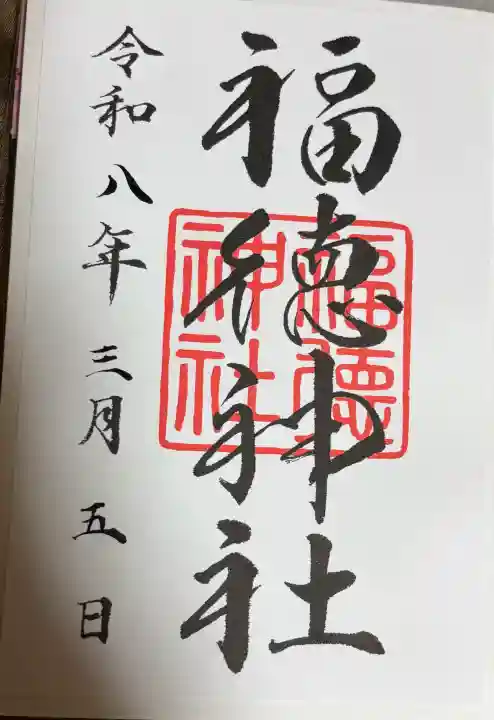 福徳神社
福徳神社
令和八年三月五日